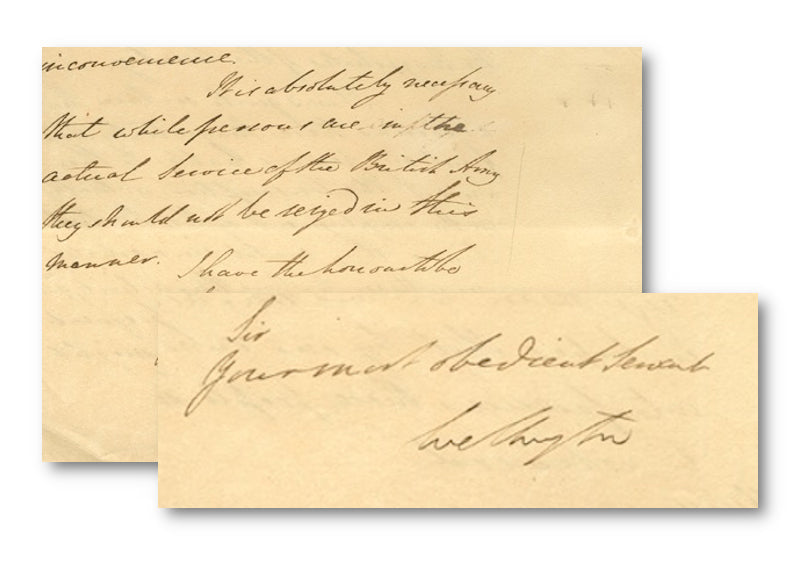 inconvenience.
It is absolutely necessary
that while persons are in the
actual Service of the British Army
they should not be seized in this
manner.
I have the honour to be
Sir
Your most obedient Servant
Wellington